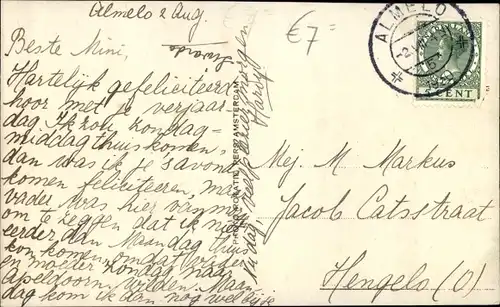 Almelo 2 Aug.
€7=
Beste Mini,
Hartelijk gefeliciteerd
hoor met je verjaar
dag. Ik zou Zondag-
middag thuis komen,
dan was ik je 's avonds
komen feliciteeren, maar
vader was hier vanmorgen
om te zeggen dat ik niet
eerder dan Maandag thuis
kon komen, omdat vader
en moeder Zondag naar
Apeldoorn wilden. Maan
dag kom ik dan nog wel bij je
ALMELO
CENT
AMSTERDAM
Mej. M Markus
Jacob Catsstraat
Hengelo (O)